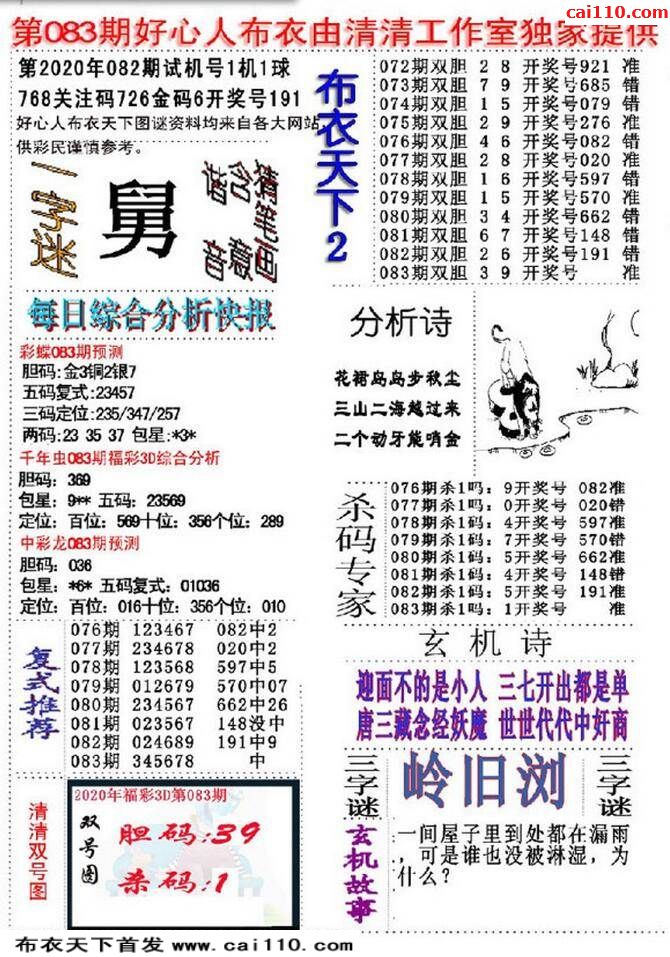 cai110.com
第083期好心人布衣由清清工作室独家提供
第2020年082期试机号1机1球
768关注码726金码6开奖号191
好心人布衣天下图谜资料均来自各大网站,
供彩民谨慎参考。
一字迷
舅
谐音
含意
猜笔画
每日综合分析快报
彩蝶083期预测
胆码:金3铜2银7
五码复式:23457
三码定位:235/347/257
两码:23 35 37 包星:*3*
千年虫083期福彩3D综合分析
胆码: 369
包星: 9** 五码: 23569
定位: 百位: 569十位: 356个位: 289
中彩龙083期预测
胆码: 036
包星: *6* 五码复式: 01036
定位: 百位: 016十位: 356个位: 010
复式推荐
076期 123467 082中2
077期 234678 020中2
078期 123568 597中5
079期 012679 570中07
080期 234567 662中26
081期 023567 148没中
082期 024689 191中9
083期 345678 中
清清双号图
2020年福彩3D第083期
双号图
胆码:39
杀码:1
布衣天下2
072期双胆 2 8 开奖号921 准
073期双胆 7 9 开奖号685 错
074期双胆 1 5 开奖号079 错
075期双胆 2 9 开奖号276 准
076期双胆 4 6 开奖号082 错
077期双胆 2 8 开奖号020 准
078期双胆 1 6 开奖号597 错
079期双胆 1 5 开奖号570 准
080期双胆 3 4 开奖号662 错
081期双胆 6 7 开奖号148 错
082期双胆 2 6 开奖号191 错
083期双胆 3 9 开奖号 准
分析诗
花裙岛岛步秋尘
三山二海越过来
二个动牙能哨金
杀码专家
076期杀1吗: 9开奖号 082准
077期杀1吗: 0开奖号 020错
078期杀1码: 4开奖号 597准
079期杀1码: 7开奖号 570错
080期杀1码: 5开奖号 662准
081期杀1码: 4开奖号 148错
082期杀1码: 5开奖号 191准
083期杀1吗: 1开奖号 准
玄机诗
迎面不的是小人 三七开出都是单
唐三藏念经妖魔 世世代代中奸商
三字谜
岭旧浏
三字谜
玄机故事
一间屋子里到处都在漏雨
,可是谁也没被淋湿,为
什么?
布衣天下首发 www.cai110.com